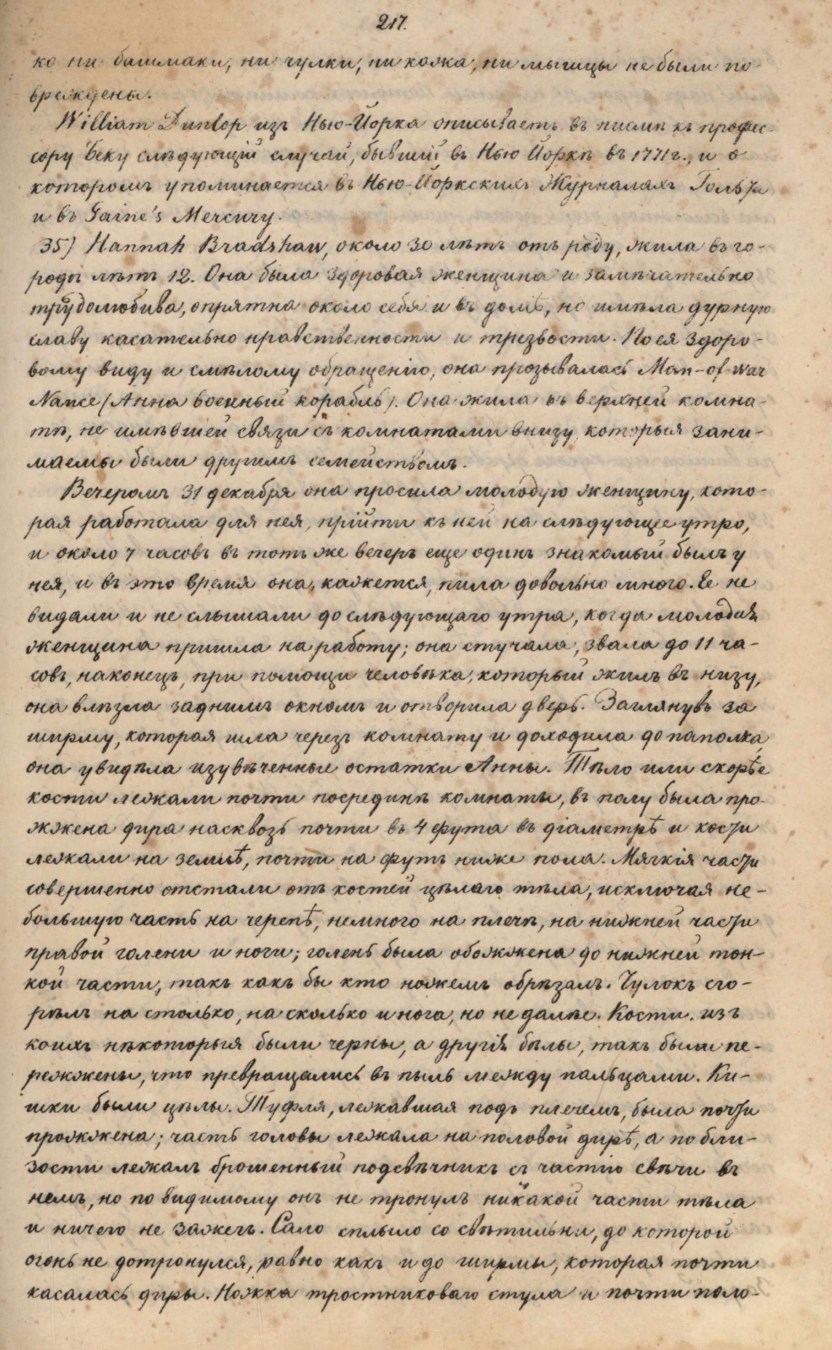 217.
ко ни башмаки, ни чулки, ни кожа, ни мышцы не были по-
вреждены.
William Dunlop изъ Нью-Йорка описываетъ въ письмѣ къ профес-
сору Беку слѣдующій случай, бывшій въ Нью Йоркѣ въ 1771 г., и о
которомъ упоминается въ Нью-Йоркскихъ Журналахъ Гольта
и въ Gaine's Mercury.
35) Hannah Bradshaw, около 30 лѣтъ отъ роду, жила въ го-
родѣ лѣтъ 12. Она была здоровая женщина и замѣчательно
трудолюбива, опрятна около себя и въ домѣ, но имѣла дурную
славу касательно нравственности и трезвости. По ея здоро-
вому виду и смѣлому обращенію, она прозывалась Man-of war
Nance (Анна военный корабль). Она жила въ верхней комна-
тѣ, не имѣвшей связи съ комнатами внизу, которыя зани-
маемы были другимъ семействомъ.
Вечеромъ 31 декабря она просила молодую женщину, кото-
рая работала для нея, прійти къ ней на слѣдующее утро,
и около 7 часовъ въ тотъ же вечеръ еще одинъ знакомый былъ у
нея, и въ это время она, кажется, пила довольно много. Ее не
видали и не слышали до слѣдующаго утра, когда молодая
женщина пришла на работу; она стучала, звала до 11 ча-
совъ, наконецъ, при помощи человѣка, который жилъ въ низу,
она влѣзла заднимъ окномъ и отворила дверь. Заглянувъ за
ширму, которая шла черезъ комнату и доходила до потолка,
она увидѣла изувѣченные остатки Анны. Тѣло или скорѣе
кости лежали почти посрединѣ комнаты, въ полу была про-
жжена дира насквозь почти въ 4 фута въ діаметрѣ и кости
лежали на землѣ, почти на футъ ниже пола. Мягкія части
совершенно отстали отъ костей цѣлаго тѣла, исключая не-
большую часть на черепѣ, немного на плечѣ, на нижней части
правой голени и ноги; голень была обожжена до нижней тон-
кой части, такъ какъ бы кто ножемъ обрѣзалъ. Чулокъ сго-
рѣлъ на столько, на сколько и нога, но не далѣе. Кости, изъ
коихъ нѣкоторыя были черны, а другія бѣлы, такъ были пе-
режжены, что превращались въ пыль между пальцами. Ки-
шки были цѣлы. Туфля, лежавшая подъ плечемъ, была почти
прожжена; часть головы лежала на половой дирѣ, а по бли-
зости лежалъ брошенный подсвѣчникъ съ частію свѣчи въ
немъ, но по видимому онъ не тронулъ никакой части тѣла
и ничего не зажегъ. Сало сплыло со свѣтильни, до которой
огонь не дотронулся, равно какъ и до ширмы, которая почти
касалась диры. Ножка тростниковаго стула и почти поло-